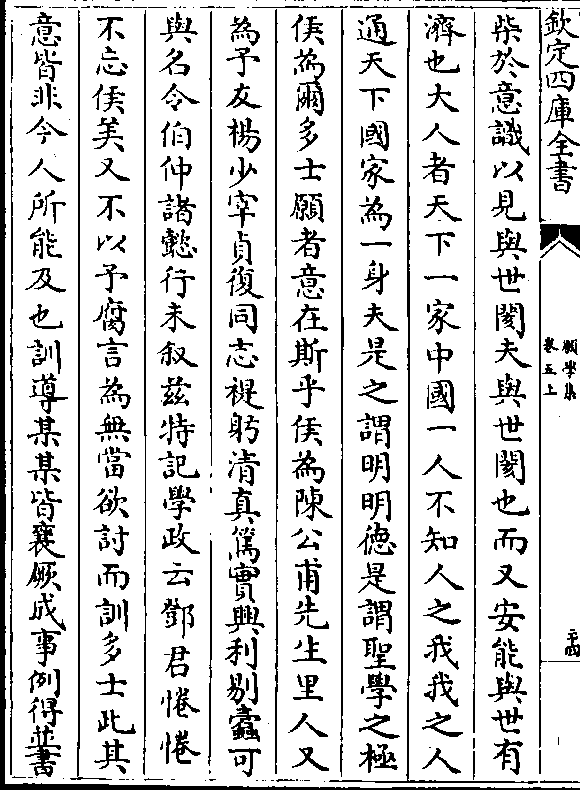 欽定四庫全書
願學集
卷五上
柴於意識以見與世閡夫與世閡也而又安能與世有
濟也大人者天下一家中國一人不知人之我我之人
通天下國家為一身夫是之謂明明德是謂聖學之極
侯為爾多士願者意在斯乎侯為陳公甫先生里人又
為予友楊少宰貞復同志褆躬清真篤實興利剔蠹可
與名令伯仲諸懿行未叙兹特記學政云鄧君惓惓
不忘侯美又不以予腐言為無當欲討而訓多士此其
意皆非今人所能及也訓導某某皆襄厥成事例得並書